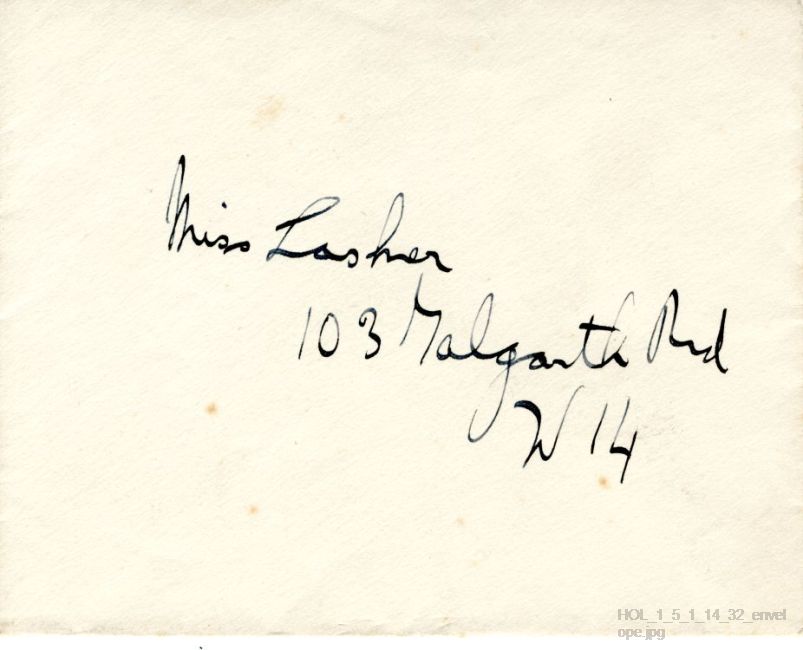 Miss Lasker
103 Talgarth Rd
W 14
HOL_1_5_1_14_32_envel
ope.jpg